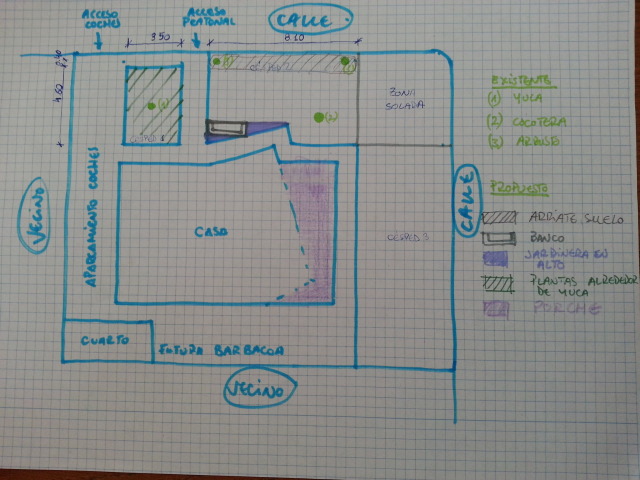 ACCESO
COCHES
ACCESO
PEATONAL
CALLE
3.50
8.60
4.60
ZONA
SOLADA
CESPED 3
CASA
APARCAMIENTO COCHES
VECINO
CALLE
CUARTO
FUTURA BARBACOA
VECINO
EXISTENTE
(1) YUCA
(2) COCOTERA
(3) ARBUSTO
PROPUESTO
ARRIATE SUELO
BANCO
JARDINERA EN
ALTO
PLANTAS ALREDEDOR
DE YUCA
PORCHE